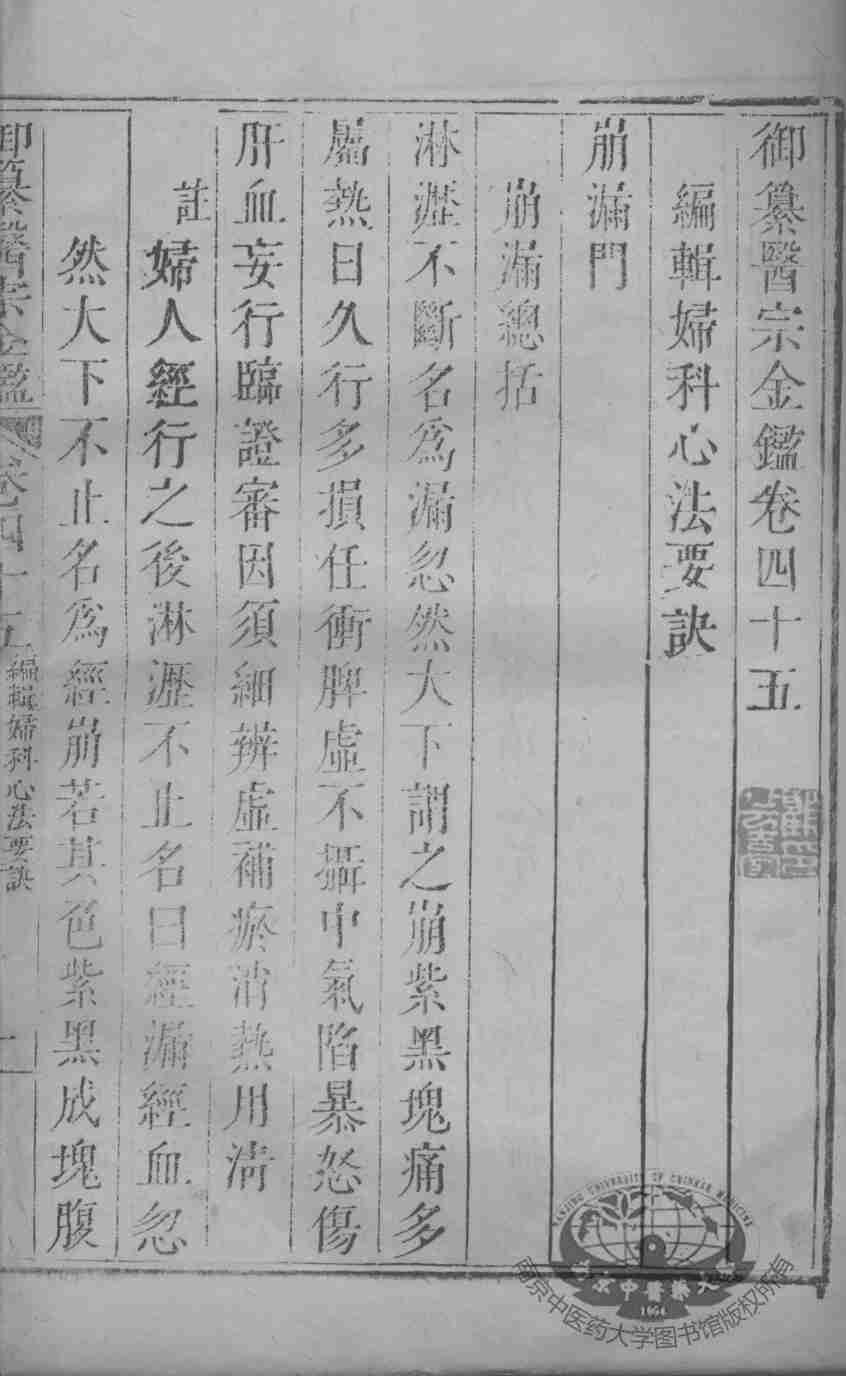 御纂醫宗金鑑卷四十五
編輯婦科心法要訣
崩漏門
崩漏總括
淋瀝不斷名爲漏忽然大下謂之崩紫黑塊痛多
屬熱日久行多損任衝脾虛不攝中氣陷暴怒傷
肝血妄行臨證審因須細辨虛補瘀消熱用淸
註婦人經行之後淋瀝不止名曰經漏經血忽
然大下不止名爲經崩若其色紫黑成塊腹
御纂醫宗金鑑 卷四十五 編輯婦科心法要訣 一
NANJING UNIVERSITY OF CHINESE MEDICINE
南京中醫藥大學
1954
南京中医药大学图书馆版权所有